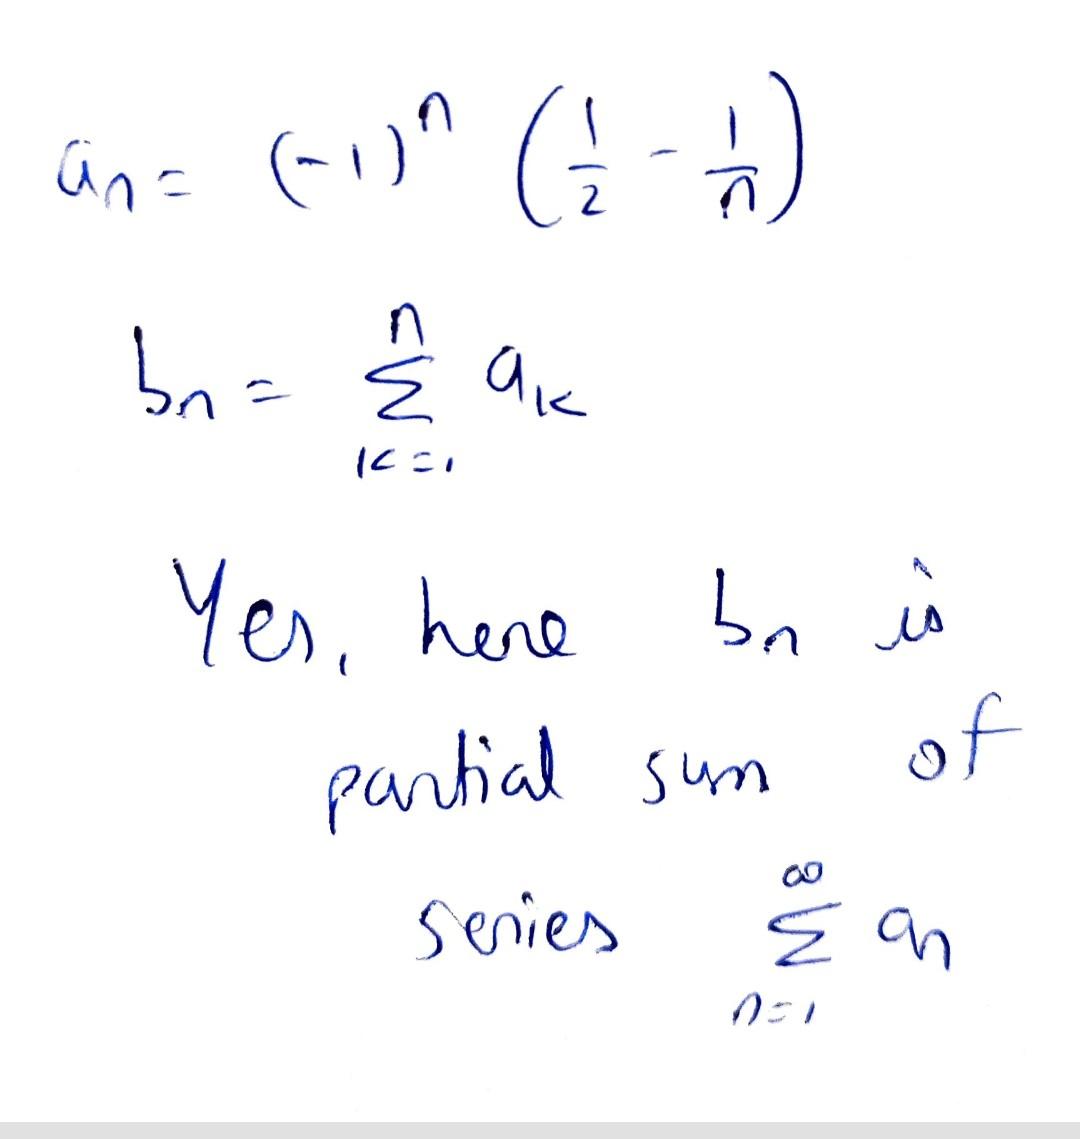 aₙ = (-1)ⁿ (1/2 - 1/n)
bₙ = ∑ₖ₌₁ⁿ aₖ
Yes, here bₙ is
partial sum of
series ∑ₙ₌₁^∞ aₙ